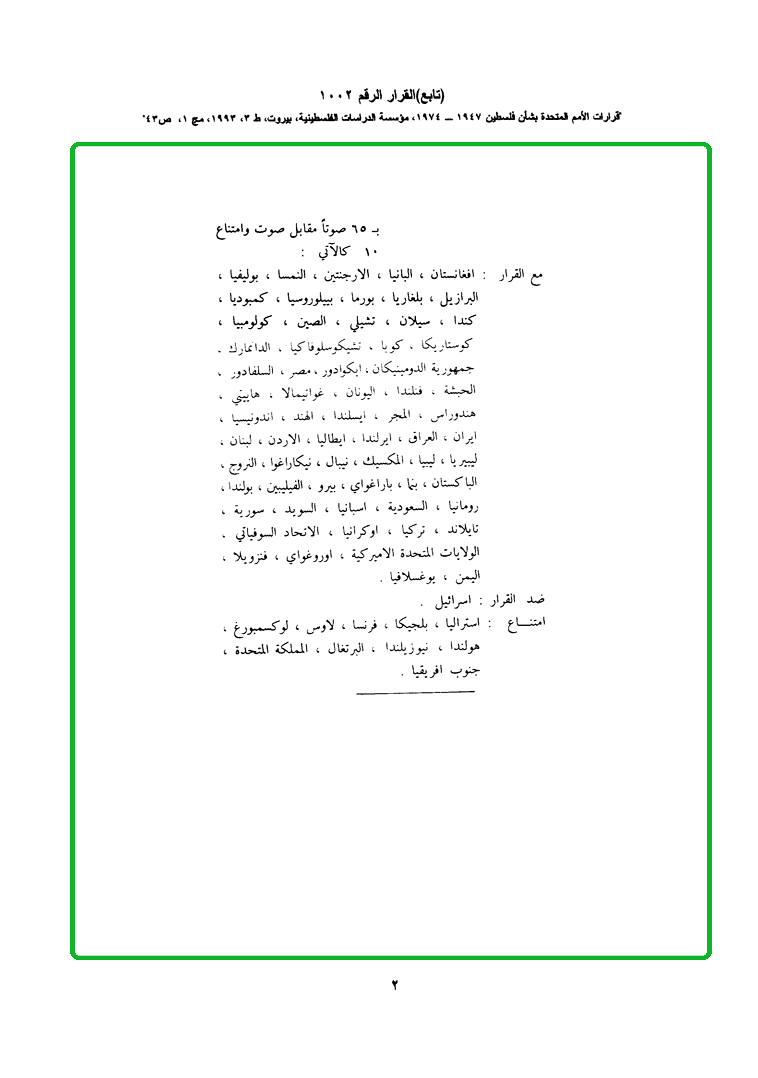 (تابع)القرار الرقم ١٠٠٢
"قرارات الأمم المتحدة بشأن فلسطين ١٩٤٧ ــ ١٩٧٤، مؤسسة الدراسات الفلسطينية، بيروت، ط ٣، ١٩٩٣، مج ١، ص٤٣"
بـ ٦٥ صوتاً مقابل صوت وامتناع
١٠ كالآتي :
مع القرار : افغانستان ، البانيا ، الارجنتين ، النمسا ، بوليفيا ،
البرازيل ، بلغاريا ، بورما ، بييلوروسيا ، كمبوديا ،
كندا ، سيلان ، تشيلي ، الصين ، كولومبيا ،
كوستاريكا ، كوبا ، تشيكوسلوفاكيا ، الدانمارك .
جمهورية الدومينيكان ، ايكوادور ، مصر ، السلفادور ،
الحبشة ، فنلندا ، اليونان ، غواتيمالا ، هاييتي ،
هندوراس ، المجر ، ايسلندا ، الهند ، اندونيسيا ،
ايران ، العراق ، ايرلندا ، ايطاليا ، الاردن ، لبنان ،
ليبيريا ، ليبيا ، المكسيك ، نيبال ، نيكاراغوا ، النروج ،
الباكستان ، بنما ، باراغواي ، بيرو ، الفيليبين ، بولندا ،
رومانيا ، السعودية ، اسبانيا ، السويد ، سورية ،
تايلاند ، تركيا ، اوكرانيا ، الاتحاد السوفياتي .
الولايات المتحدة الاميركية ، اوروغواي ، فنزويلا ،
اليمن ، يوغسلافيا .
ضد القرار : اسرائيل .
امتنـــاع : استراليا ، بلجيكا ، فرنسا ، لاوس ، لوكسمبورغ ،
هولندا ، نيوزيلندا ، البرتغال ، المملكة المتحدة ،
جنوب افريقيا .
٢